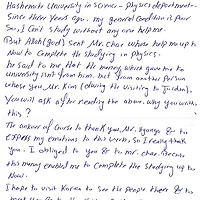 Hashemote University in Science - Physics department -
Since three years ago. my general Condition is poor
So, I Can't study without any one help me -
But Allah (god) sent Mr. Char whose help me up to
Now to Complete the studying in physics.
he said to me that the money which gave me to
university isn't from him, but from another person
whose you, Mr. Kim (during the visiting to Jordan).
You will ask after reading the above, why you write
this?
The answer of Course to thank you, Mr. and to
express my emotions in this words, so I really thank
you. I obliged to you & to mr. char. because
this money enabled me to Complete the studying up to
Now.
I hope to visit Korea to see the people there & to